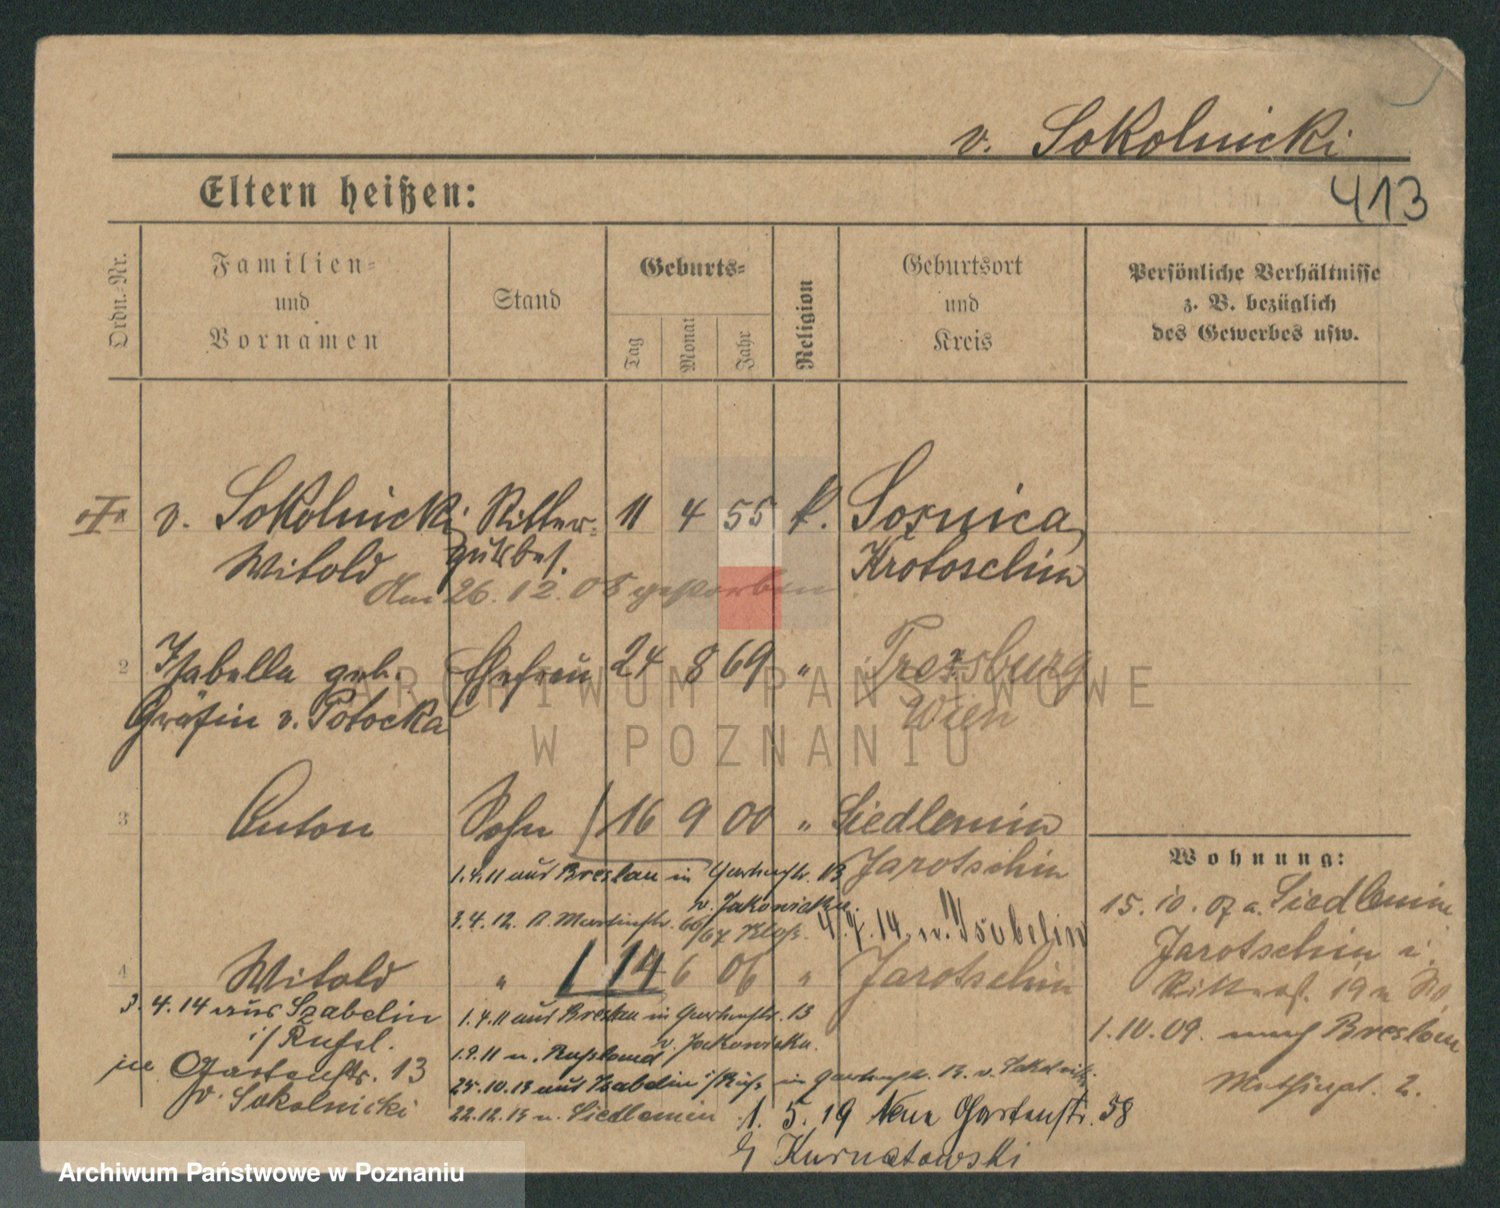 v. Sokolnicki
Eltern heißen:
413
Ordn.-Nr.
Familien-
und
Vornamen
Stand
Geburts-
Tag
Monat
Jahr
Religion
Geburtsort
und
Kreis
Persönliche Verhältnisse
z. B. bezüglich
des Gewerbes usw.
v. Sokolnicki Ritter- 11 4 55 k. Sosnica
Witold gutsbes. Krotoschin
Am 26. 12. 08 gestorben
2 Isabella geb. Ehefrau 24 8 69 " Wien
Gräfin v. Potocka
3 Anton Sohn 16 9 00 " Siedlemin
Jarotschin
1.4.11 aus Breslau in Gartenstr. 13
v. Jakowicka.
3.4.12. Martinstr. 66/67
4.14. n. Isobelin
4 Witold " 14 6 06 " Jarotschin
3. 4. 14 aus Szabelin
i/ Rußl.
in Gartenstr. 13
v. Sokolnicki
1.4.11 aus Breslau in Gartenstr. 13
v. Jakowicka.
1.9.11 n. Russland
25.10.13 aus i/Russ in Gartenstr. 13. v. Sokolnicki.
22.12.13 n. Siedlemin
1. 5. 19 Neue Gartenstr. 58
Kurnatowski
Wohnung:
15. 10. 07 a. Siedlemin
Jarotschin i.
Ritterst. 19
1.10.09. nach Breslau
2.
ARCHIWUM PAŃSTWOWE
W POZNANIU
Archiwum Państwowe w Poznaniu